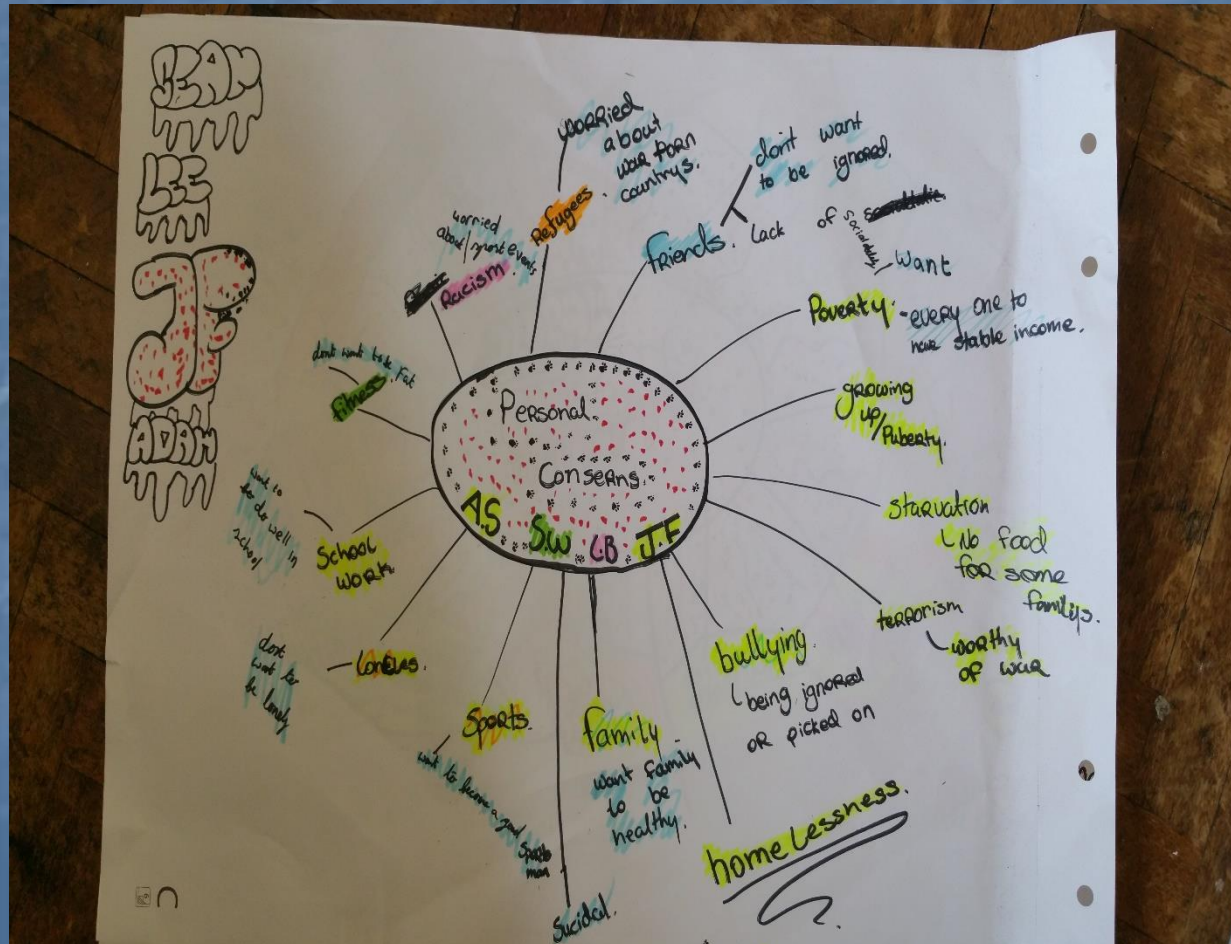 SEAN
LEE
JF
ADAM
Personal
Conserns
A.S
S.W
L.B
J.F
Refugees
worried
about
war torn
countrys.
friends.
dont want
to be ignored.
Lack
of
Want
Poverty
- every one to
have stable income.
growing
up/
Puberty.
starvation
No food
for some
familys.
terrorism
worthy
of war
bullying.
being ignored
or picked on
homelessness.
family
want family
to be
healthy.
Sucidal.
Sports.
want to become a good
sports
man
dont
want to
be lonely
School
work
want to
do well in
school
fitness
dont want to be fat
Racism
worried
about/
events